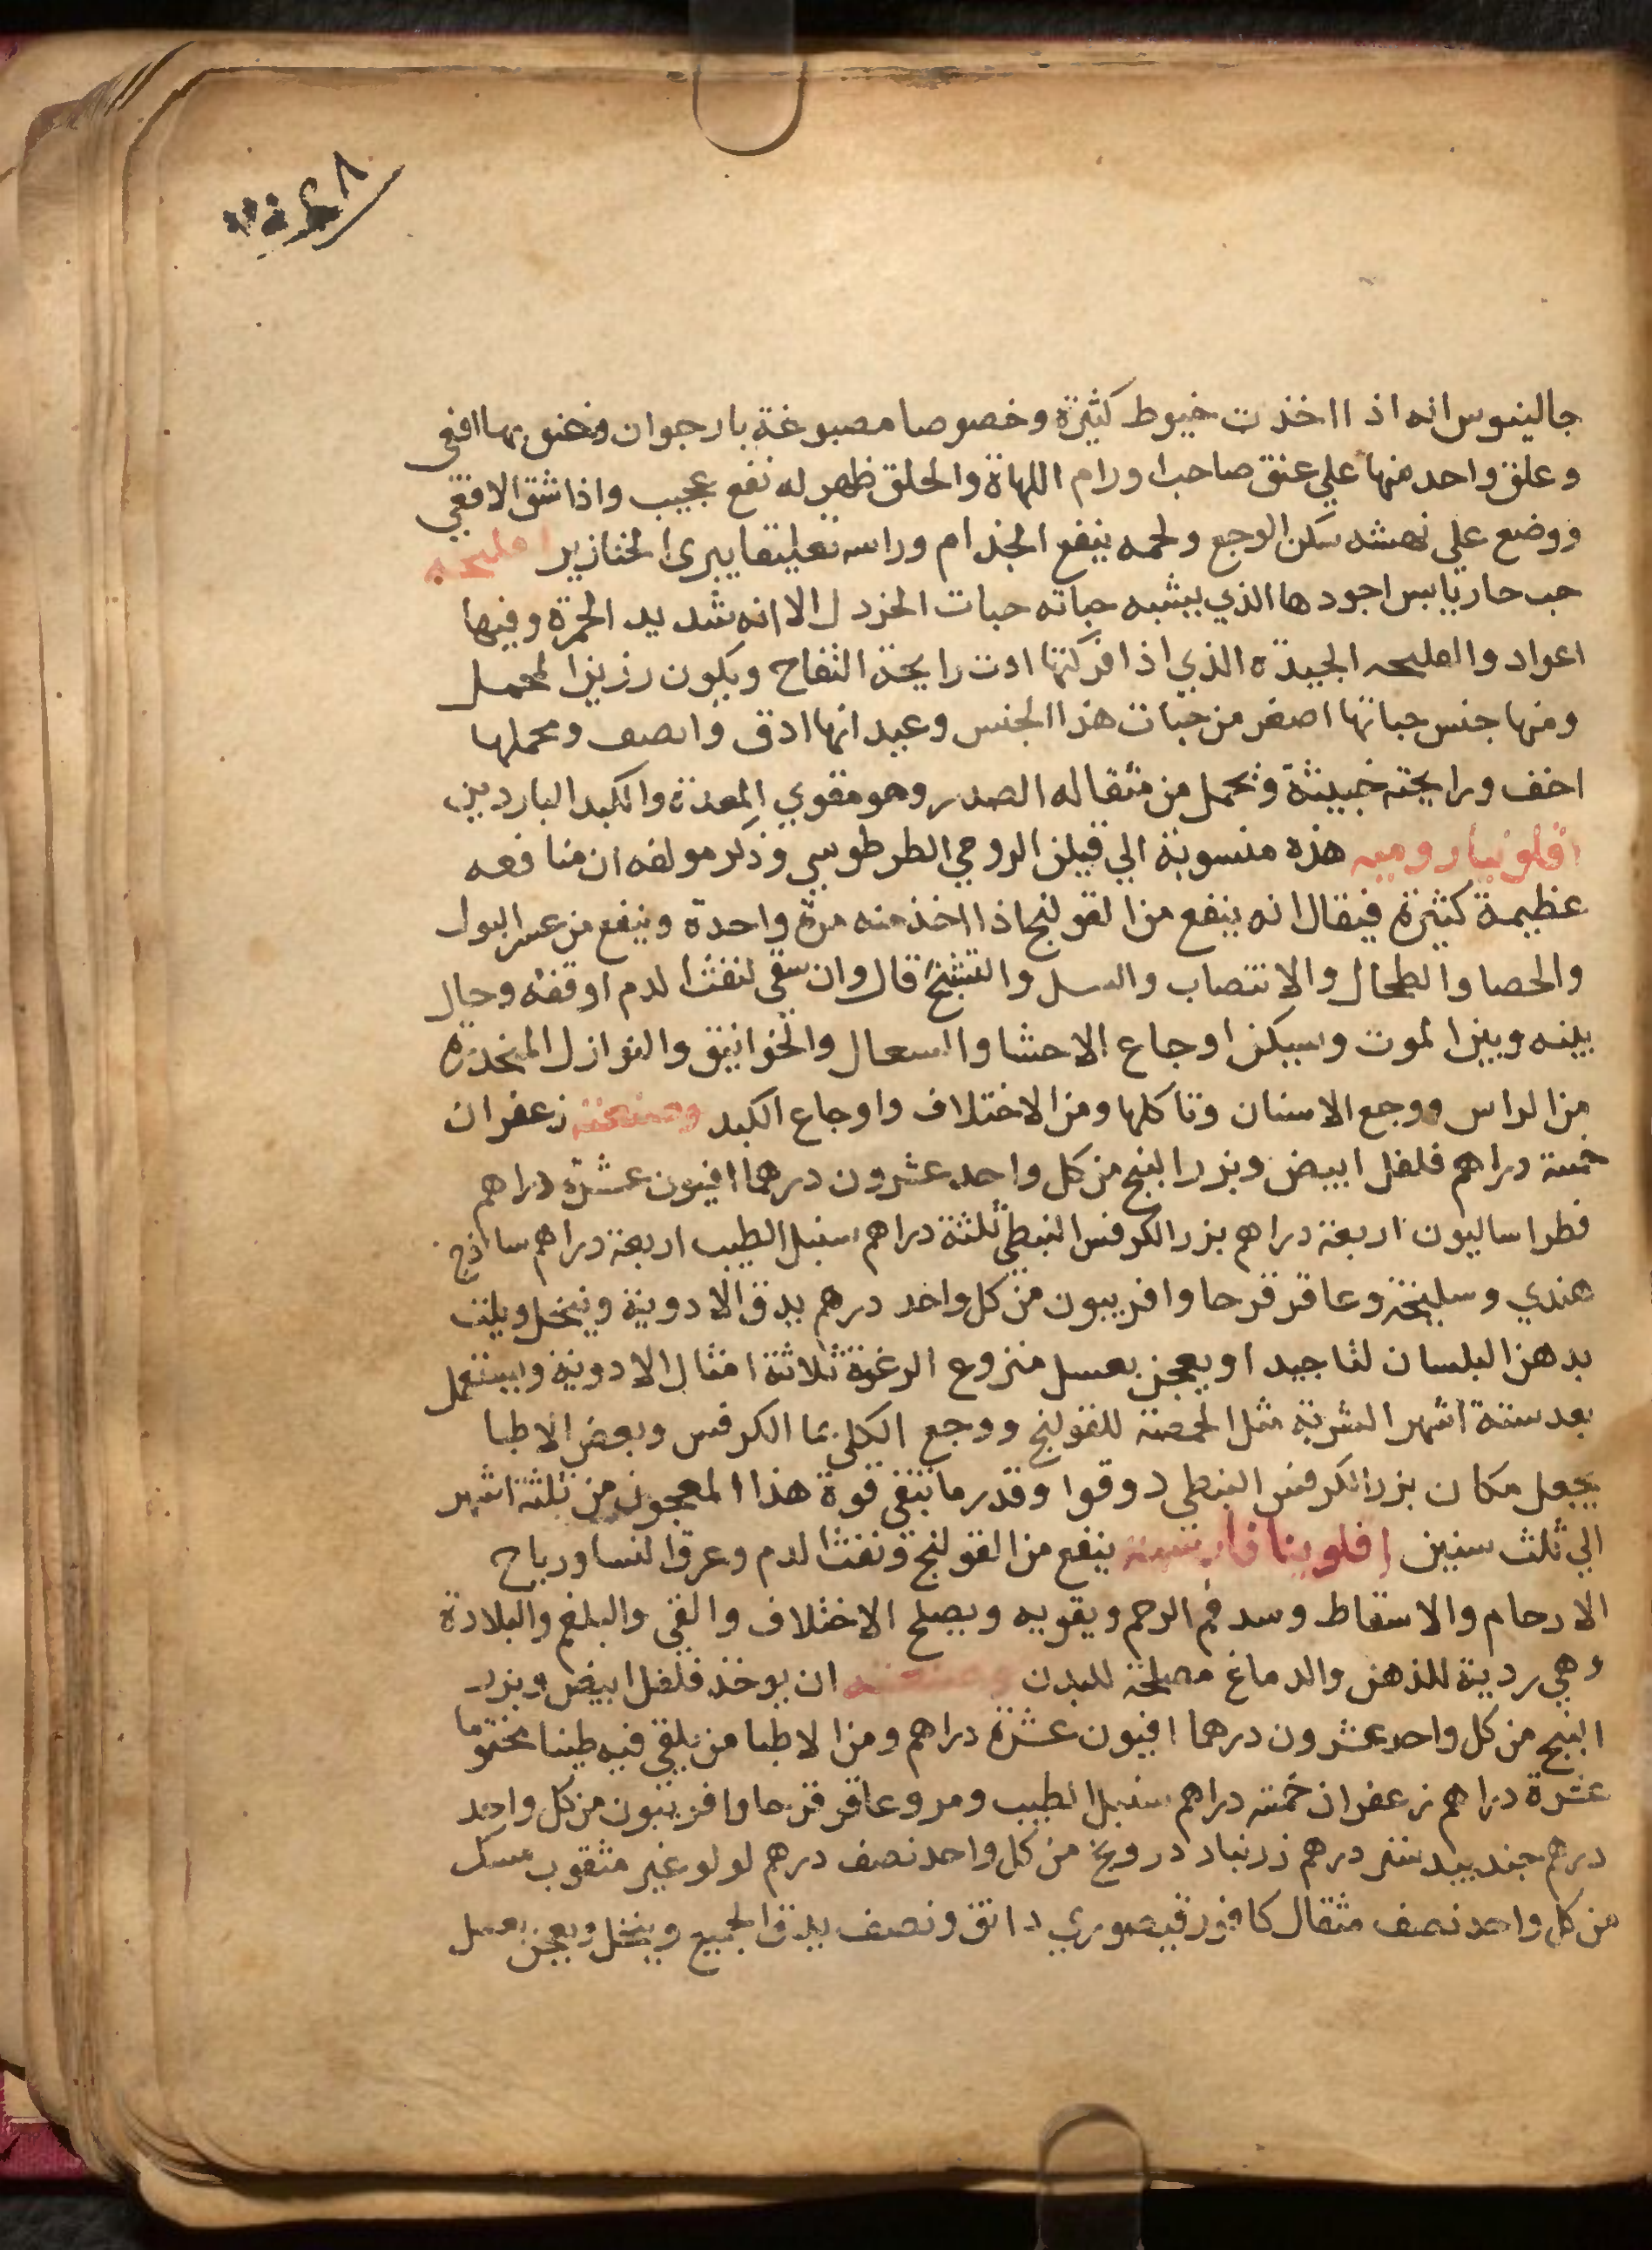 جالينوس انه اذا اخذت خيوط كثيرة وخصوصا مصبوغة بارجوان وخنق بها افعى
وعلق واحد منها علي عنق صاحب اورام اللهاة والحلق ظهر له نفع عجيب واذا شق الافعي
ووضع علي نهشه سكن الوجع ولحمه ينفع الجذام وراسه تعليقا يبرى الخنازير
حب حار يابس اجودها الذي يشبه حباته حبات الخردل الا انه شديد الحمرة وفيها
اعواد والفليحه الجيدة الذي اذا فركتها ادت رايحة التفاح ويكون رزين المحمل
ومنها جنس حباتها اصغر من حبات هذا الجنس وعيدانها ادق وانصف ومحملها
اخف ورايحته خبيثة وتحمل من مثقاله الصدر وهو مقوي المعدة والكبد الباردين
افلونيا روميه هذه منسوبة الي فيلن الرومي الطرطوسي وذكر مولفه ان منافعه
عظيمة كثيرة فيقال انه ينفع من القولنج اذا اخذ منه مرة واحدة وينفع من عسر البول
والحصا والطحال والانتصاب والسل والتشنج قال وان سقي لنفث الدم اوقفه وحال
بينه وبين الموت ويسكن اوجاع الاحشا والسعال والخوانيق والنوازل المنحدرة
من الراس ووجع الاسنان وتاكلها ومن الاختلاف واوجاع الكبد وصنعته زعفران
خمسة دراهم فلفل ابيض وبزر البنج من كل واحد عشرون درهما افيون عشرة دراهم
فطراساليون اربعة دراهم بزر الكرفس النبطي ثلثة دراهم سنبل الطيب اربعة دراهم ساذج
هندي وسليخة وعاقر قرحا وافربيون من كل واحد درهم يدق الادوية وينخل ويلت
بدهن البلسان لتا جيدا ويعجن بعسل منزوع الرغوة ثلاثة امثال الادوية ويستعمل
بعد ستة اشهر الشربة مثل الحمصة للقولنج ووجع الكلي بما الكرفس وبعض الاطبا
يجعل مكان بزر الكرفس النبطي دوقوا وقدر ما تبقي قوة هذا المعجون من ثلثة اشهر
الي ثلث سنين افلونيا فارسية ينفع من القولنج ونفث الدم وعرق النسا ورياح
الارحام والاسقاط وسد فم الرحم ويقويه ويصلح الاختلاف والقي والبلغم والبلادة
وهي ردية للذهن والدماغ مصلحة للبدن وصنعته ان يوخذ فلفل ابيض وبزر
البنج من كل واحد عشرون درهما افيون عشرة دراهم ومن الاطبا من يلقي فيه طينا مختوما
عشرة دراهم زعفران خمسة دراهم سنبل الطيب ومر وعاقر قرحا وافربيون من كل واحد
درهم جندبيدستر درهم زرنباد درونج من كل واحد نصف درهم لولو غير مثقوب مسك
من كل واحد نصف مثقال كافور قيصوري دانق ونصف يدق الجميع وينخل ويعجن بعسل